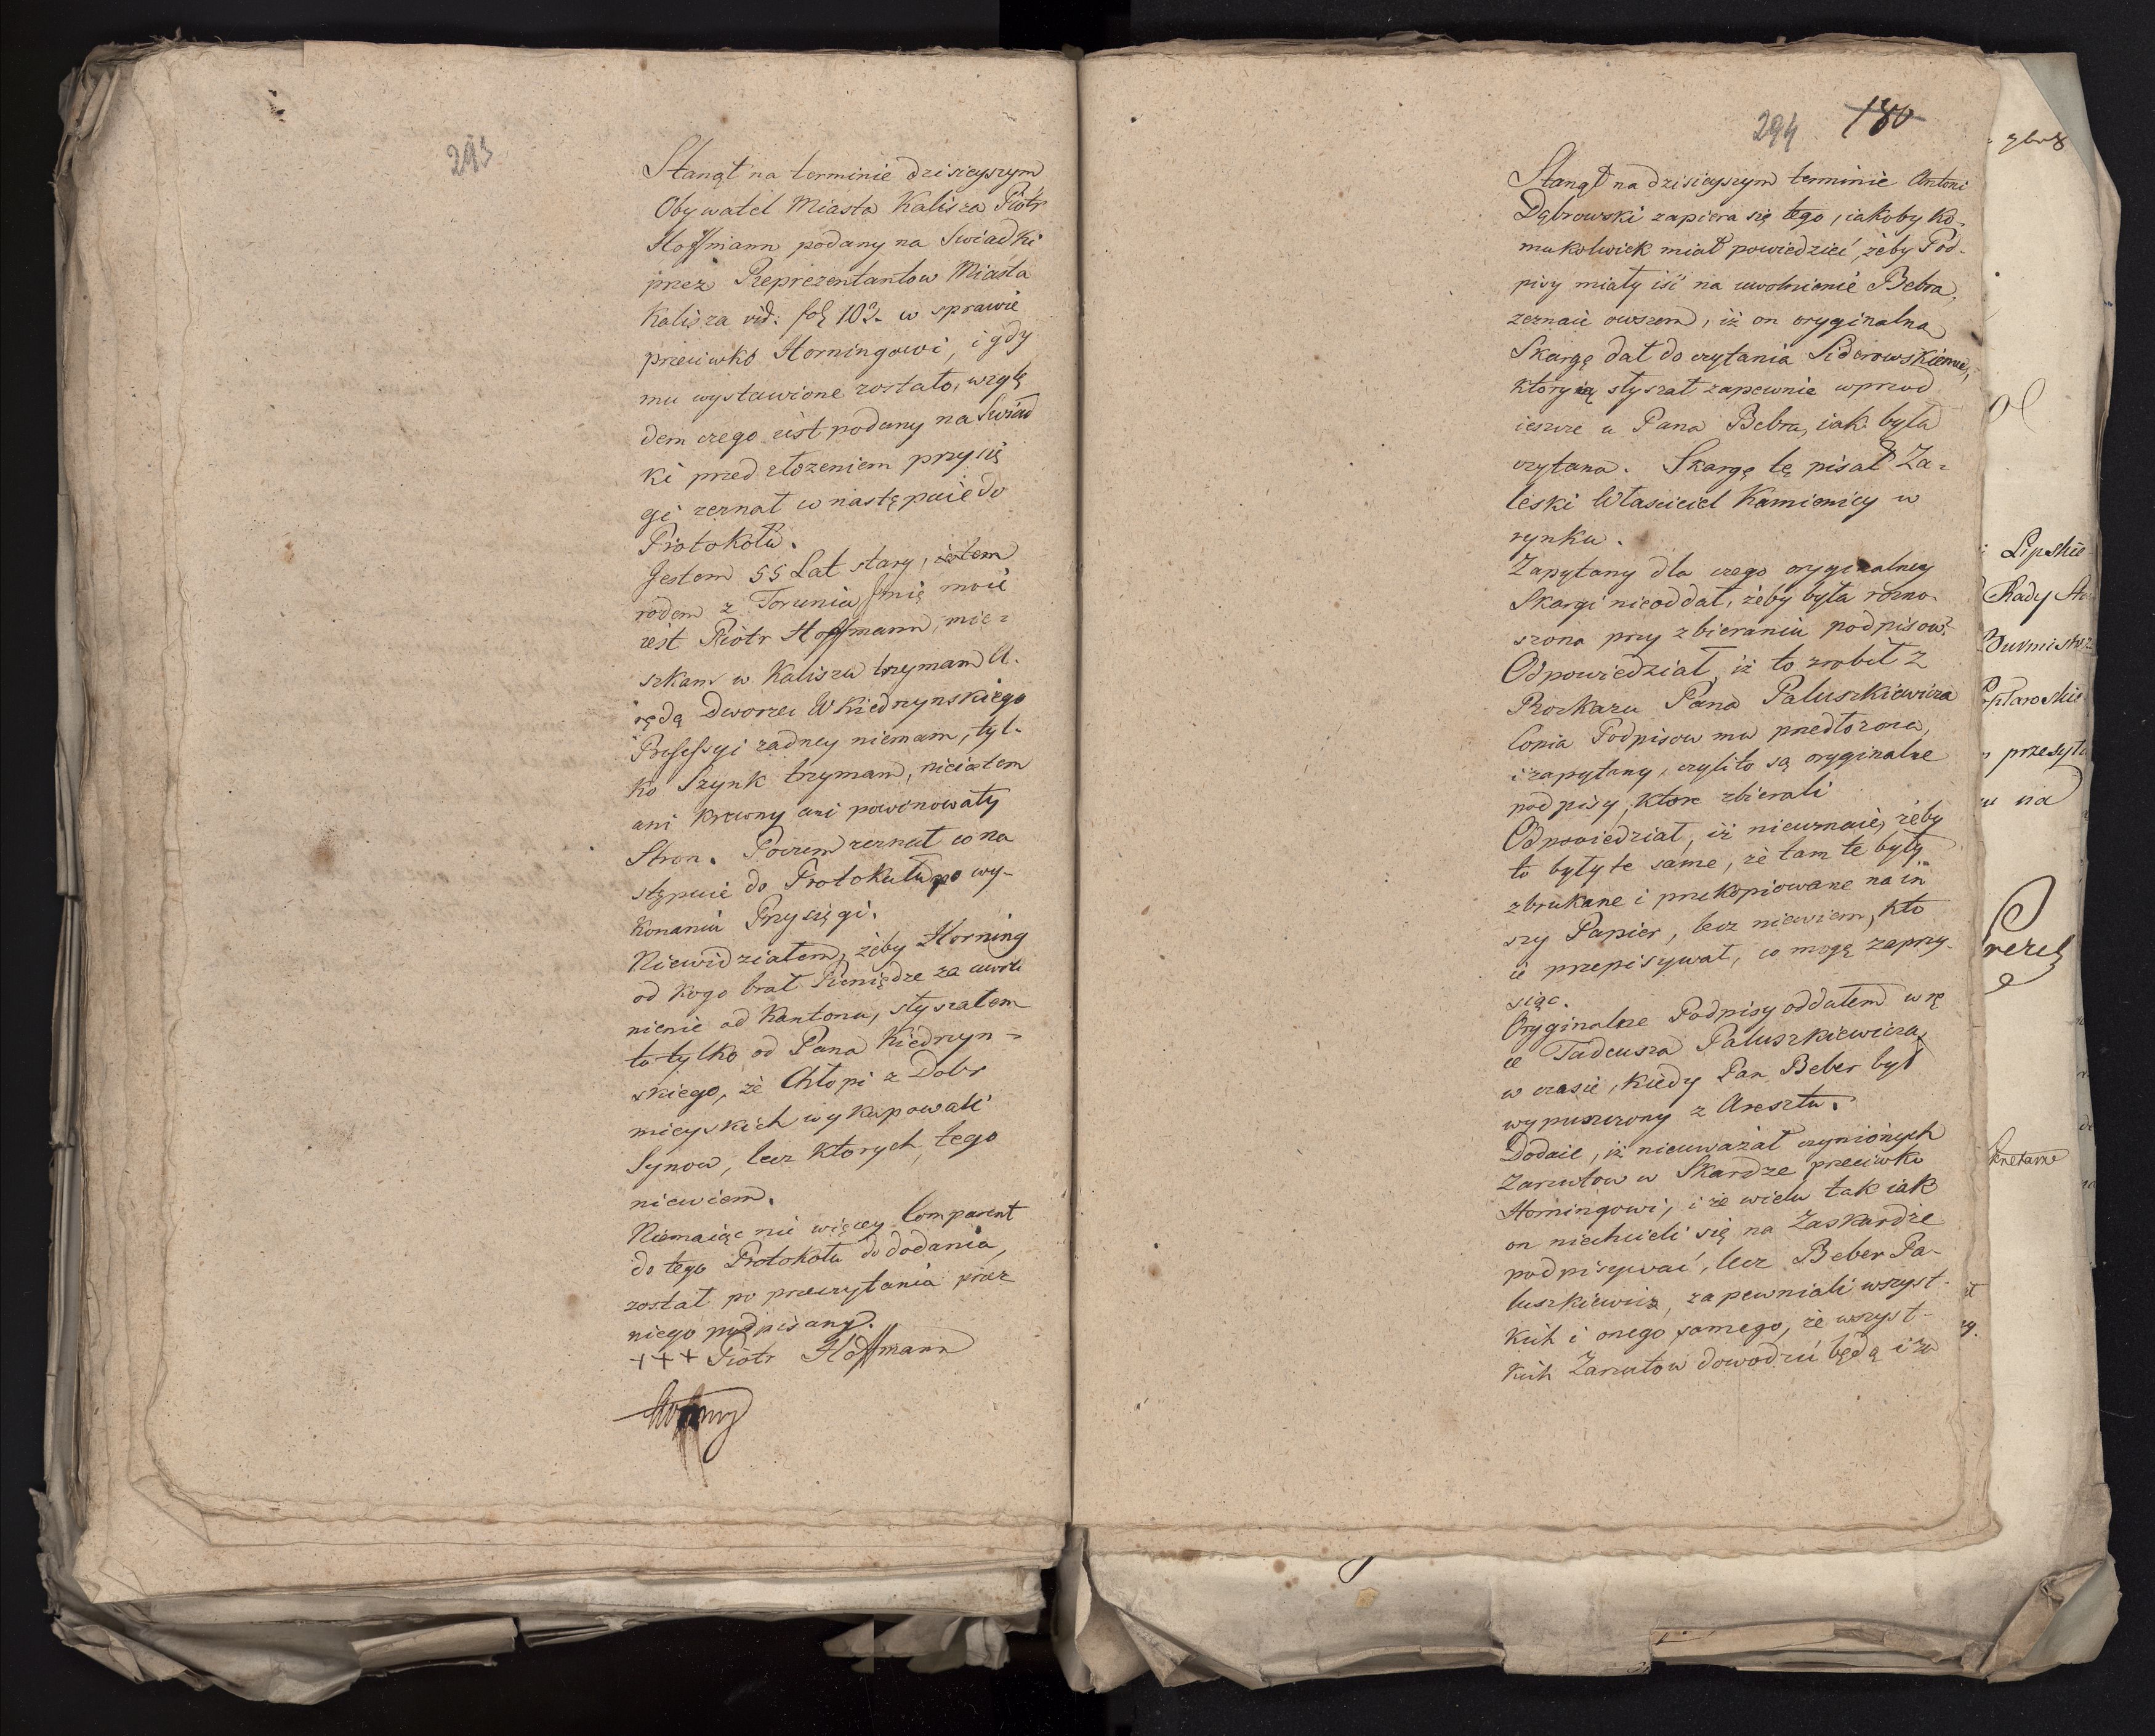 293
Stanął na terminie dzisieyszym
Obywatel Miasta Kalisza Piotr
Hoffmann podany na Swiadki
przez Reprezentantow Miasta
Kalisza vid. fol 103. w sprawie
przeciwko Horningowi, i gdy
mu wystawione zostało, wzglę
dem czego iest podany na Swiad
ki przed złożeniem przysię
gi zeznał w następuie do
Protokołu.
Jestem 55 Lat stary, iestem
rodem z Torunia Jmię moie
iest Piotr Hoffmann, mie-
szkam w Kaliszu trzymam A-
ręndą Dworzec W Kiedrzynskiego
Professyi żadney niemam, tyl-
ko Szynk trzymam, nieiestem
ani krewny ani powinowaty
Stron. Poczem zeznał co na
stępuie do Protokułu po wy-
konaniu Przysięgi.
Niewidziałem, żeby Horning
od kogo brał Pieniądze za uwol
nienie od Kantonu, słyszałem
to tylko od Pana Kiedrzyn-
skiego, że Chłopi z Dobr
mieyskich wykupowali
Synow, lecz ktorych, tego
niewiem.
Niemaiąc nic więcey Comparent
do tego Protokołu do dodania,
został po przeczytaniu przez
niego podpisany.
+++ Piotr Hoffmann
294 180
Stanął na dzisieyszym terminie Antoni
Dąbrowski zapiera się tego, iakoby ko-
mukolwiek miał powiedzieć, żeby Pod-
pisy miały iść na uwolnienie Bebra,
zeznaie owszem, iż on oryginalną
Skargę dał do czytania Siderowskiemu,
ktory ią słyszał zapewnie wprzod
ieszcze u Pana Bebra, iak była
czytana. Skargę tę pisał Za-
leski Własciciel Kamienicy w
rynku.
Zapytany dla czego oryginalney
Skargi nieoddał, żeby była rozno-
szona przy zbieraniu podpisow?
Odpowiedział, iż to zrobił z
Rozkazu Pana Paluszkiewicza
Copia Podpisow mu przedłożona,
i zapytany, czyli to są oryginalne
podpisy, ktore zbierali
Odpowiedział, iż nieuznaie, żeby
to były te same, że tam te były
zbrukane i przekopiowane na in
szy Papier, lecz niewiem, kto
ie przepisywał, co mogę zaprzy-
siąc.
Oryginalne Podpisy oddałem w rę
ce Tadeusza Paluszkiewicza,
w czasie, kiedy Pan Beber był
wypuszczony z Aresztu.
Dodaie, iż nieuważał czynionych
Zarzutow w Skardze przeciwko
Horningowi, i że wielu tak iak
on niechcieli się na Zaskardze
podpisywać, lecz Beber Pa-
luszkiewicz, zapewniali wszyst-
kich i onego samego, że wszyst-
kich Zarzutow dowodzić będą i że
Lipskie
Rady
Burmistrz
przesyła
na